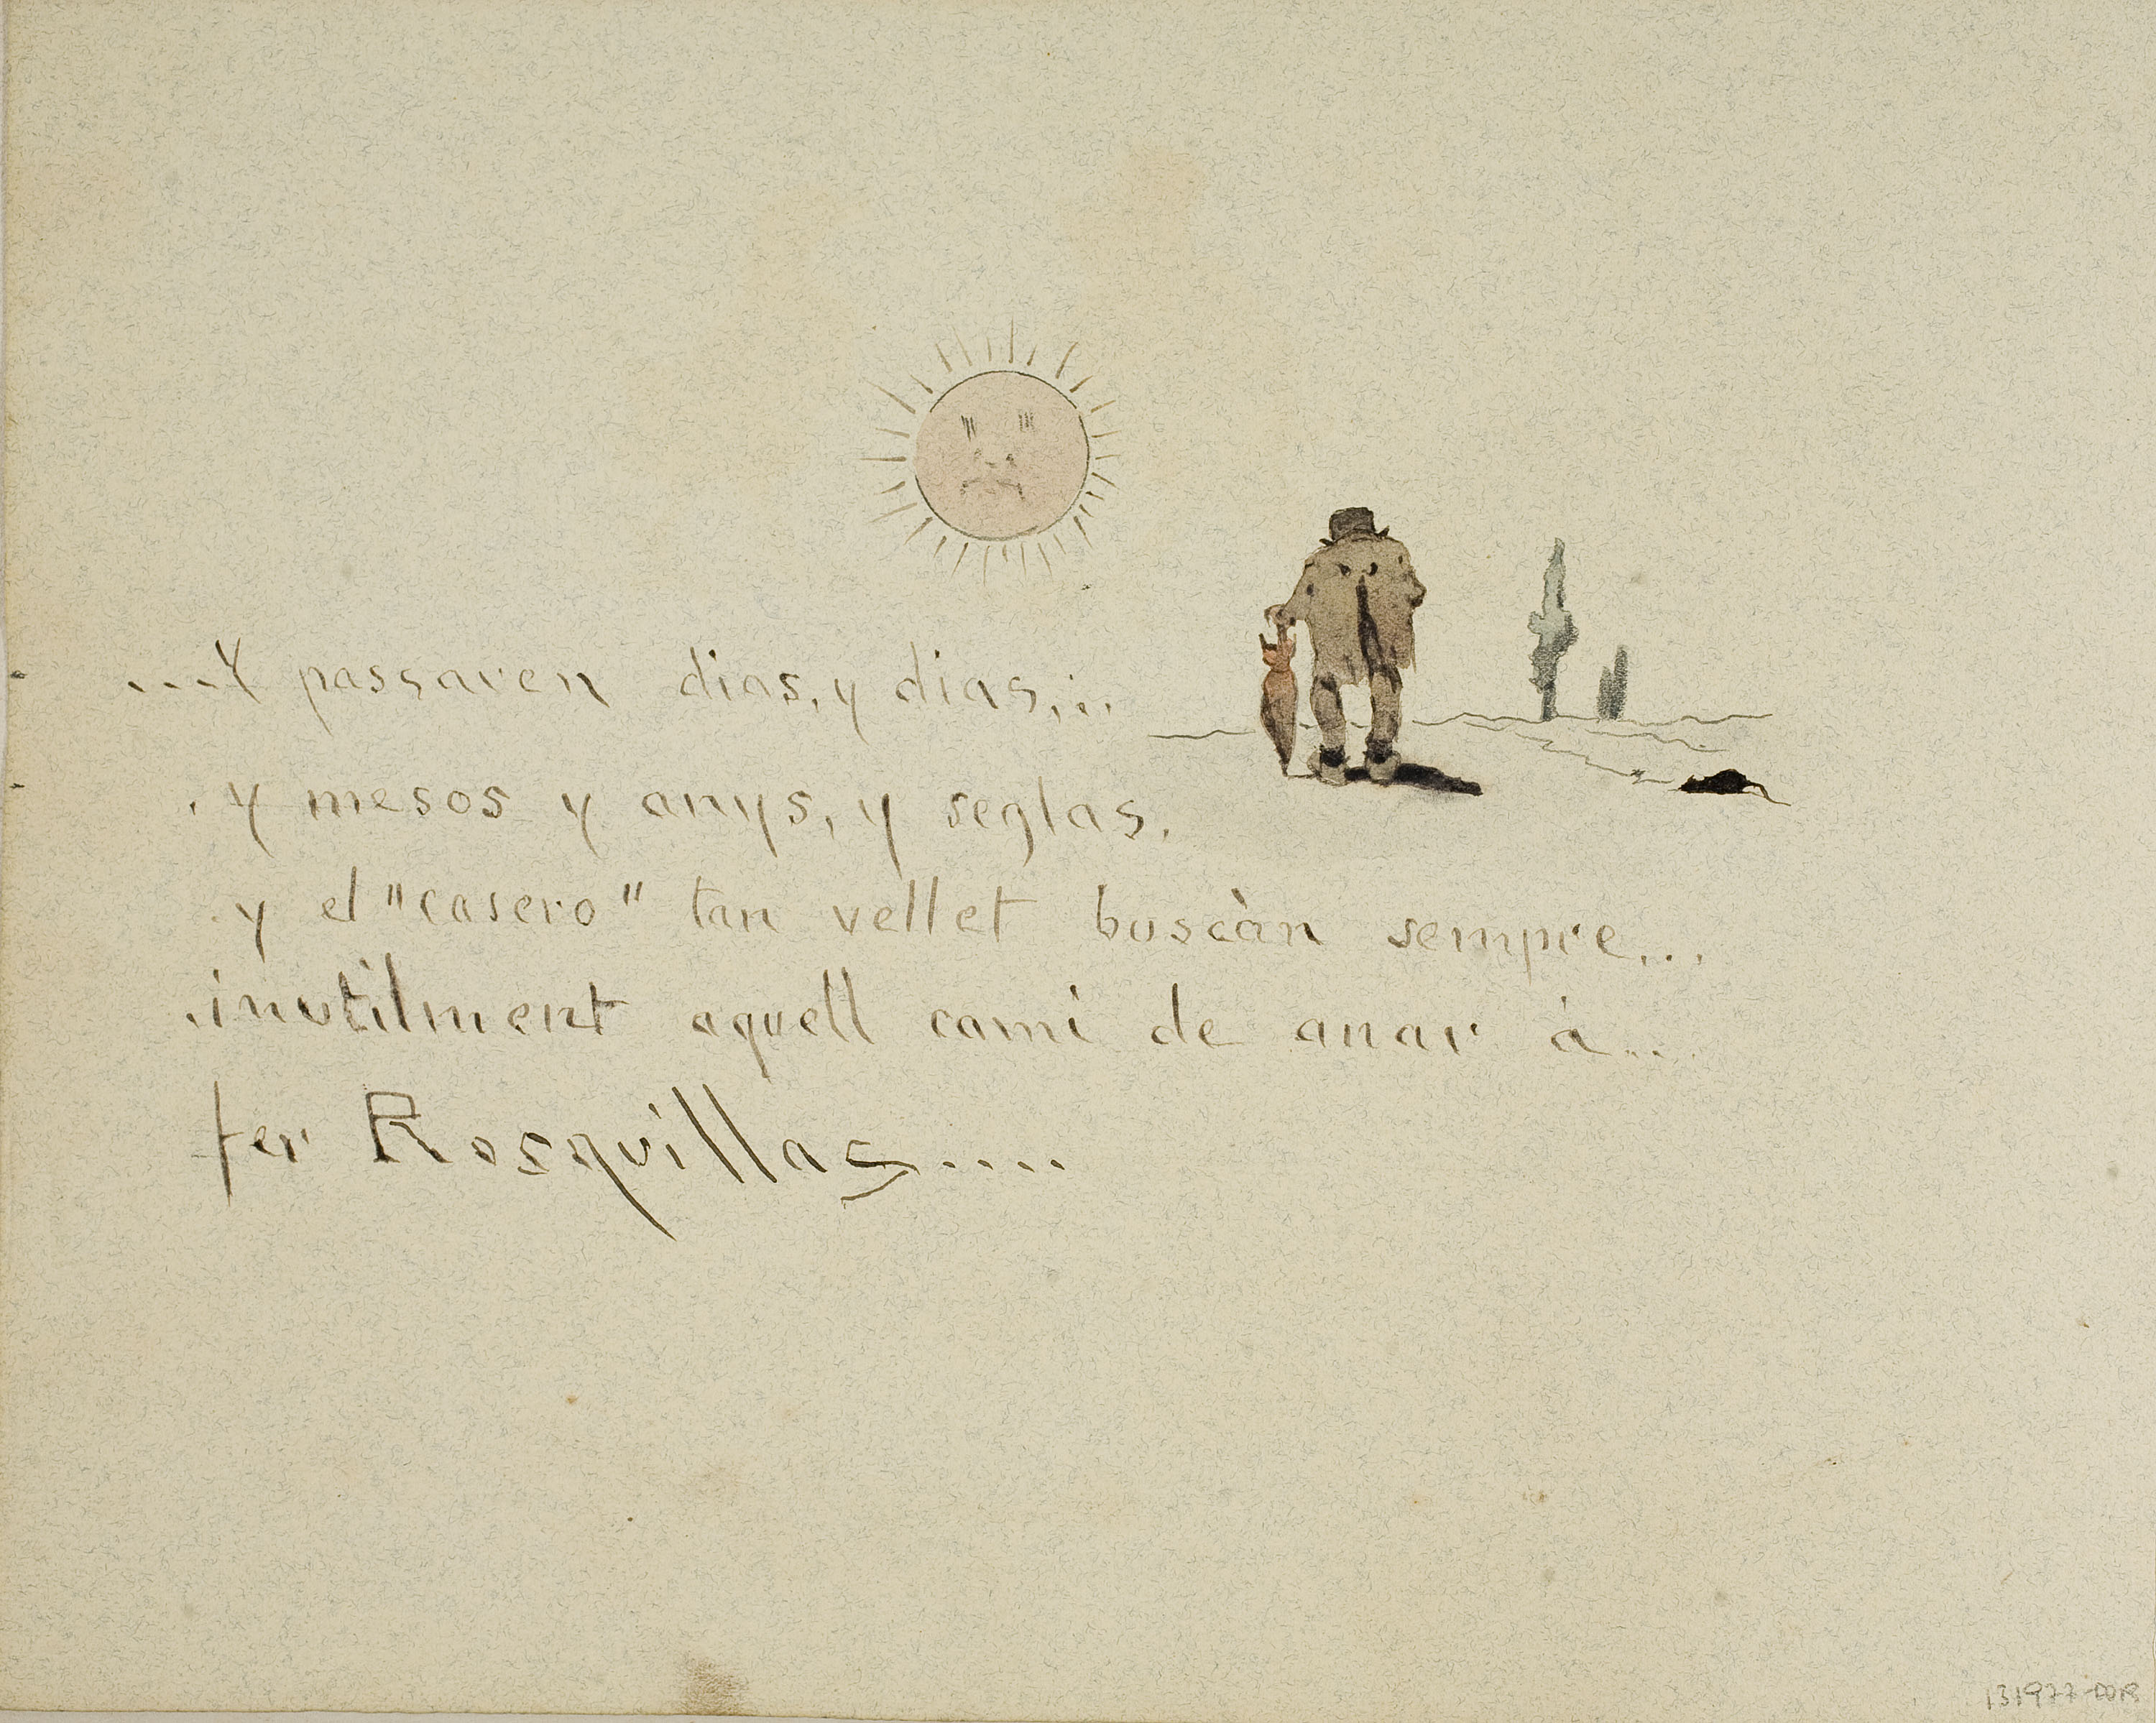 ....Y passaven dias, y dias,...
. y mesos y anys, y seglas.
. y el "casero" tan vellet buscàn sempre...
.inutilment aquell camí de anar à...
fer Rosquillas....
131977-DOR